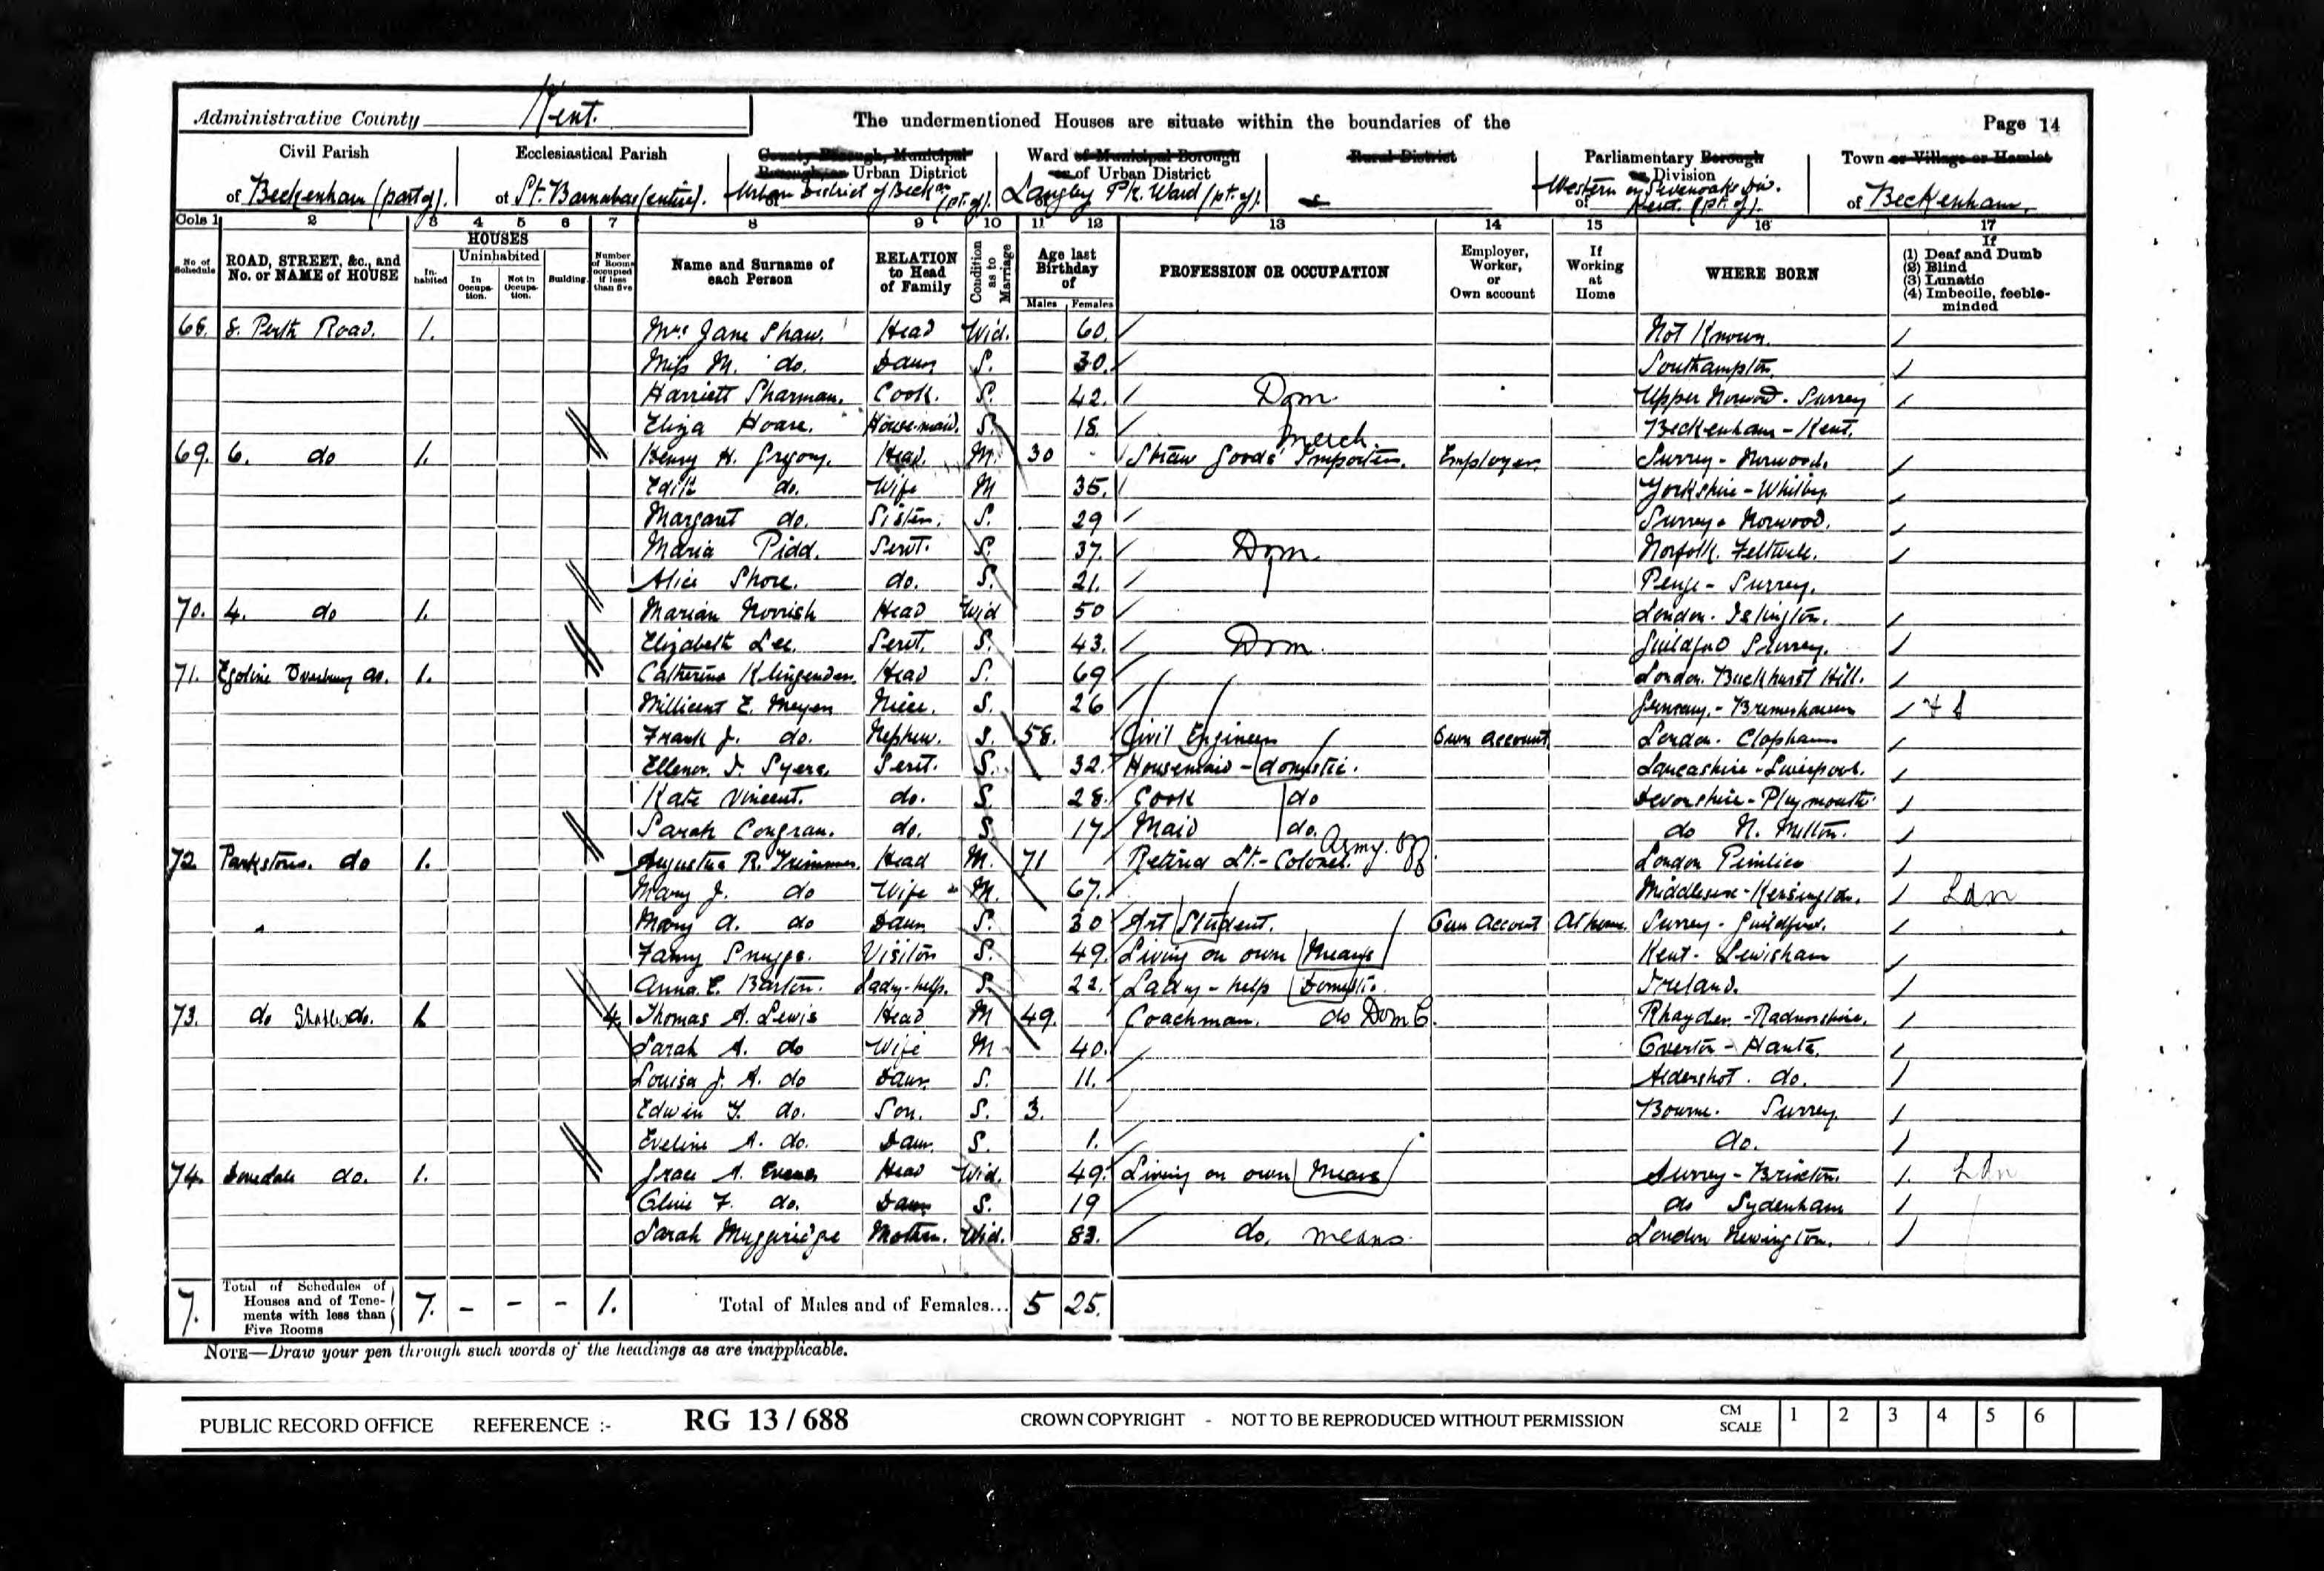 Administrative County Kent. The undermentioned Houses are situate within the boundaries of the Page 14
Civil Parish Ecclesiastical Parish County Borough, Municipal Borough, or Urban District Ward of Municipal Borough or of Urban District Rural District Parliamentary Borough or Division Town or Village or Hamlet
of Beckenham (part of). of St. Barnabas (entire). Urban District of Beck (pt. of). Langley Pk. Ward (pt. of). of Western or Sevenoaks Div. Kent. (pt. of). of Beckenham.
Cols 1 2 3 4 5 6 7 8 9 10 11 12 13 14 15 16 17
No. of Schedule ROAD, STREET, &c., and No. or NAME of HOUSE HOUSES Inhabited Uninhabited In Occupation. Not in Occupation. Building Number of Rooms occupied if less than five Name and Surname of each Person RELATION to Head of Family Condition as to Marriage Age last Birthday of Males Females PROFESSION OR OCCUPATION Employer, Worker, or Own account If Working at Home WHERE BORN If (1) Deaf and Dumb (2) Blind (3) Lunatic (4) Imbecile, feeble-minded
68. 8. Perth Road. 1. Mrs Jane Shaw. Head Wid. 60. Not Known
Miss M. do. Daur S. 30. Southampton
Harriett Sharman. Cook. S. 42. Dom Upper Norwood. Surrey
Eliza Hoare. Housemaid. S. 18. Beckenham - Kent.
69. 6. do 1. Henry H. Gregory. Head M. 30 - Straw Goods Importer. Merch. Employer Surrey - Norwood.
Edith do. Wife M 35. Yorkshire - Whitby
Margaret do. Sister. S. 29 Surrey - Norwood.
Maria Pidd. Servt. S. 37. Dom Norfolk. Feltwell.
Alice Shore. do. S. 21. Penge - Surrey.
70. 4. do 1. Marian Norrish Head Wid 50 London. Islington.
Elizabeth Lee. Servt. S. 43. Dom Guildford Surrey.
71. do. 1. Catherine Klingender. Head S. 69 London. Buckhurst Hill.
Millicent E. Meyer Niece. S. 26 Germany. - Bremerhaven
Frank J. do. Nephew. S. 58. Civil Engineer Own account London. Clapham
Ellenor. J. Syers. Servt. S. 32. Housemaid - domestic. Lancashire - Liverpool.
Kate Vincent. do. S. 28. Cook do Devonshire - Plymouth
Sarah Congran. do. S. 17 Maid do. do N. Milton.
72 Parkstone. do 1. Augustus R. Trimmer. Head M. 71 Retired Lt. - Colonel. Army. Off. London Pimlico
Mary J. do Wife M. 67. Middlesex - Kensington. Ldn
Mary A. do Daur S. 30 Art Student. Own Account At home. Surrey - Guildford.
Fanny Snugge. Visitor S. 49. Living on own Means Kent - Lewisham
Anna E. Barton. Lady-help. S. 22. Lady - help Domestic. Ireland.
73. do Stable do. 1 4. Thomas A. Lewis Head M 49. Coachman. do Dom C. Rhayder - Radnorshire.
Sarah A. do Wife M 40. Overton - Hants.
Louisa J. A. do Daur. S. 11. Aldershot. do.
Edwin Y. do. Son. S. 3. Bourne. Surrey.
Eveline A. do. Daur. S. 1. do.
74. Dovedale do. 1. Grace A. Evans Head Wid. 49. Living on own Means Surrey - Brixton. Ldn
Olive F. do. Daur S. 19 do Sydenham
Sarah Muggeridge Mother. Wid. 83. do. means London Newington.
7. Total of Schedules of Houses and of Tenements with less than Five Rooms 7. - - - 1. Total of Males and of Females... 5 25.
NOTE—Draw your pen through such words of the headings as are inapplicable.
PUBLIC RECORD OFFICE REFERENCE :- RG 13 / 688 CROWN COPYRIGHT - NOT TO BE REPRODUCED WITHOUT PERMISSION CM SCALE 1 2 3 4 5 6